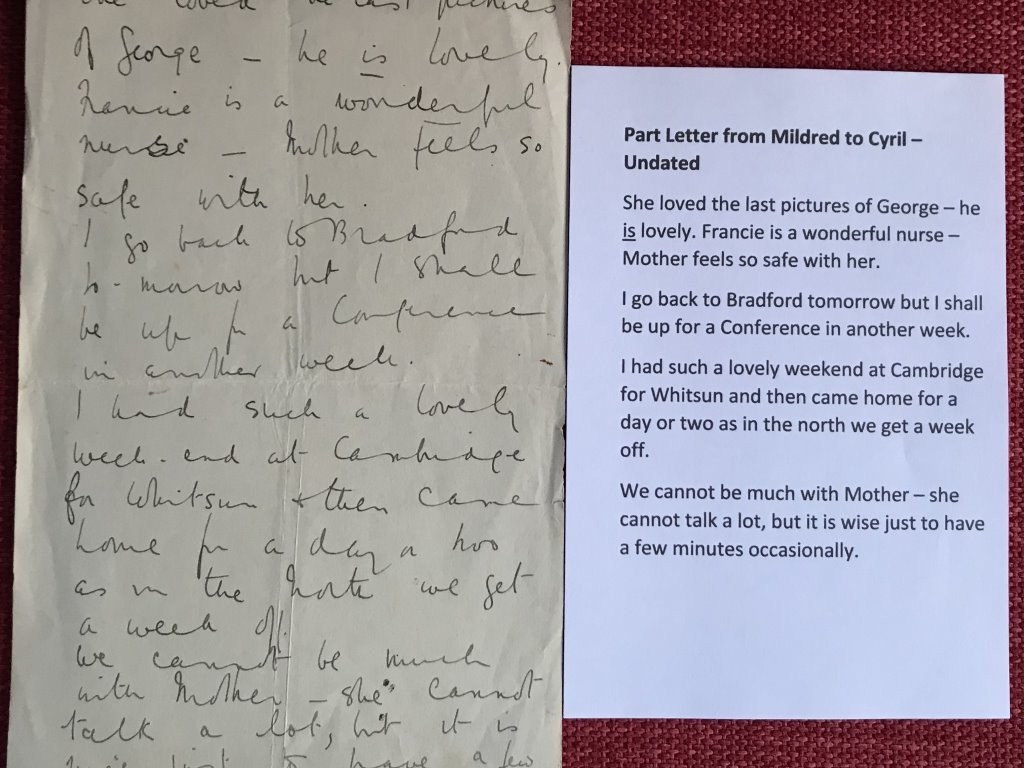 She loved the last pictures
of George – he is lovely.
Francie is a wonderful
nurse – Mother feels so
safe with her.
I go back to Bradford
to-morrow but I shall
be up for a Conference
in another week.
I had such a lovely
week-end at Cambridge
for Whitsun & then came
home for a day or two
as in the north we get
a week off.
We cannot be much
with Mother – she cannot
talk a lot, but it is
wise just to have a few
Part Letter from Mildred to Cyril –
Undated
She loved the last pictures of George – he
is lovely. Francie is a wonderful nurse –
Mother feels so safe with her.
I go back to Bradford tomorrow but I shall
be up for a Conference in another week.
I had such a lovely weekend at Cambridge
for Whitsun and then came home for a
day or two as in the north we get a week
off.
We cannot be much with Mother – she
cannot talk a lot, but it is wise just to have
a few minutes occasionally.